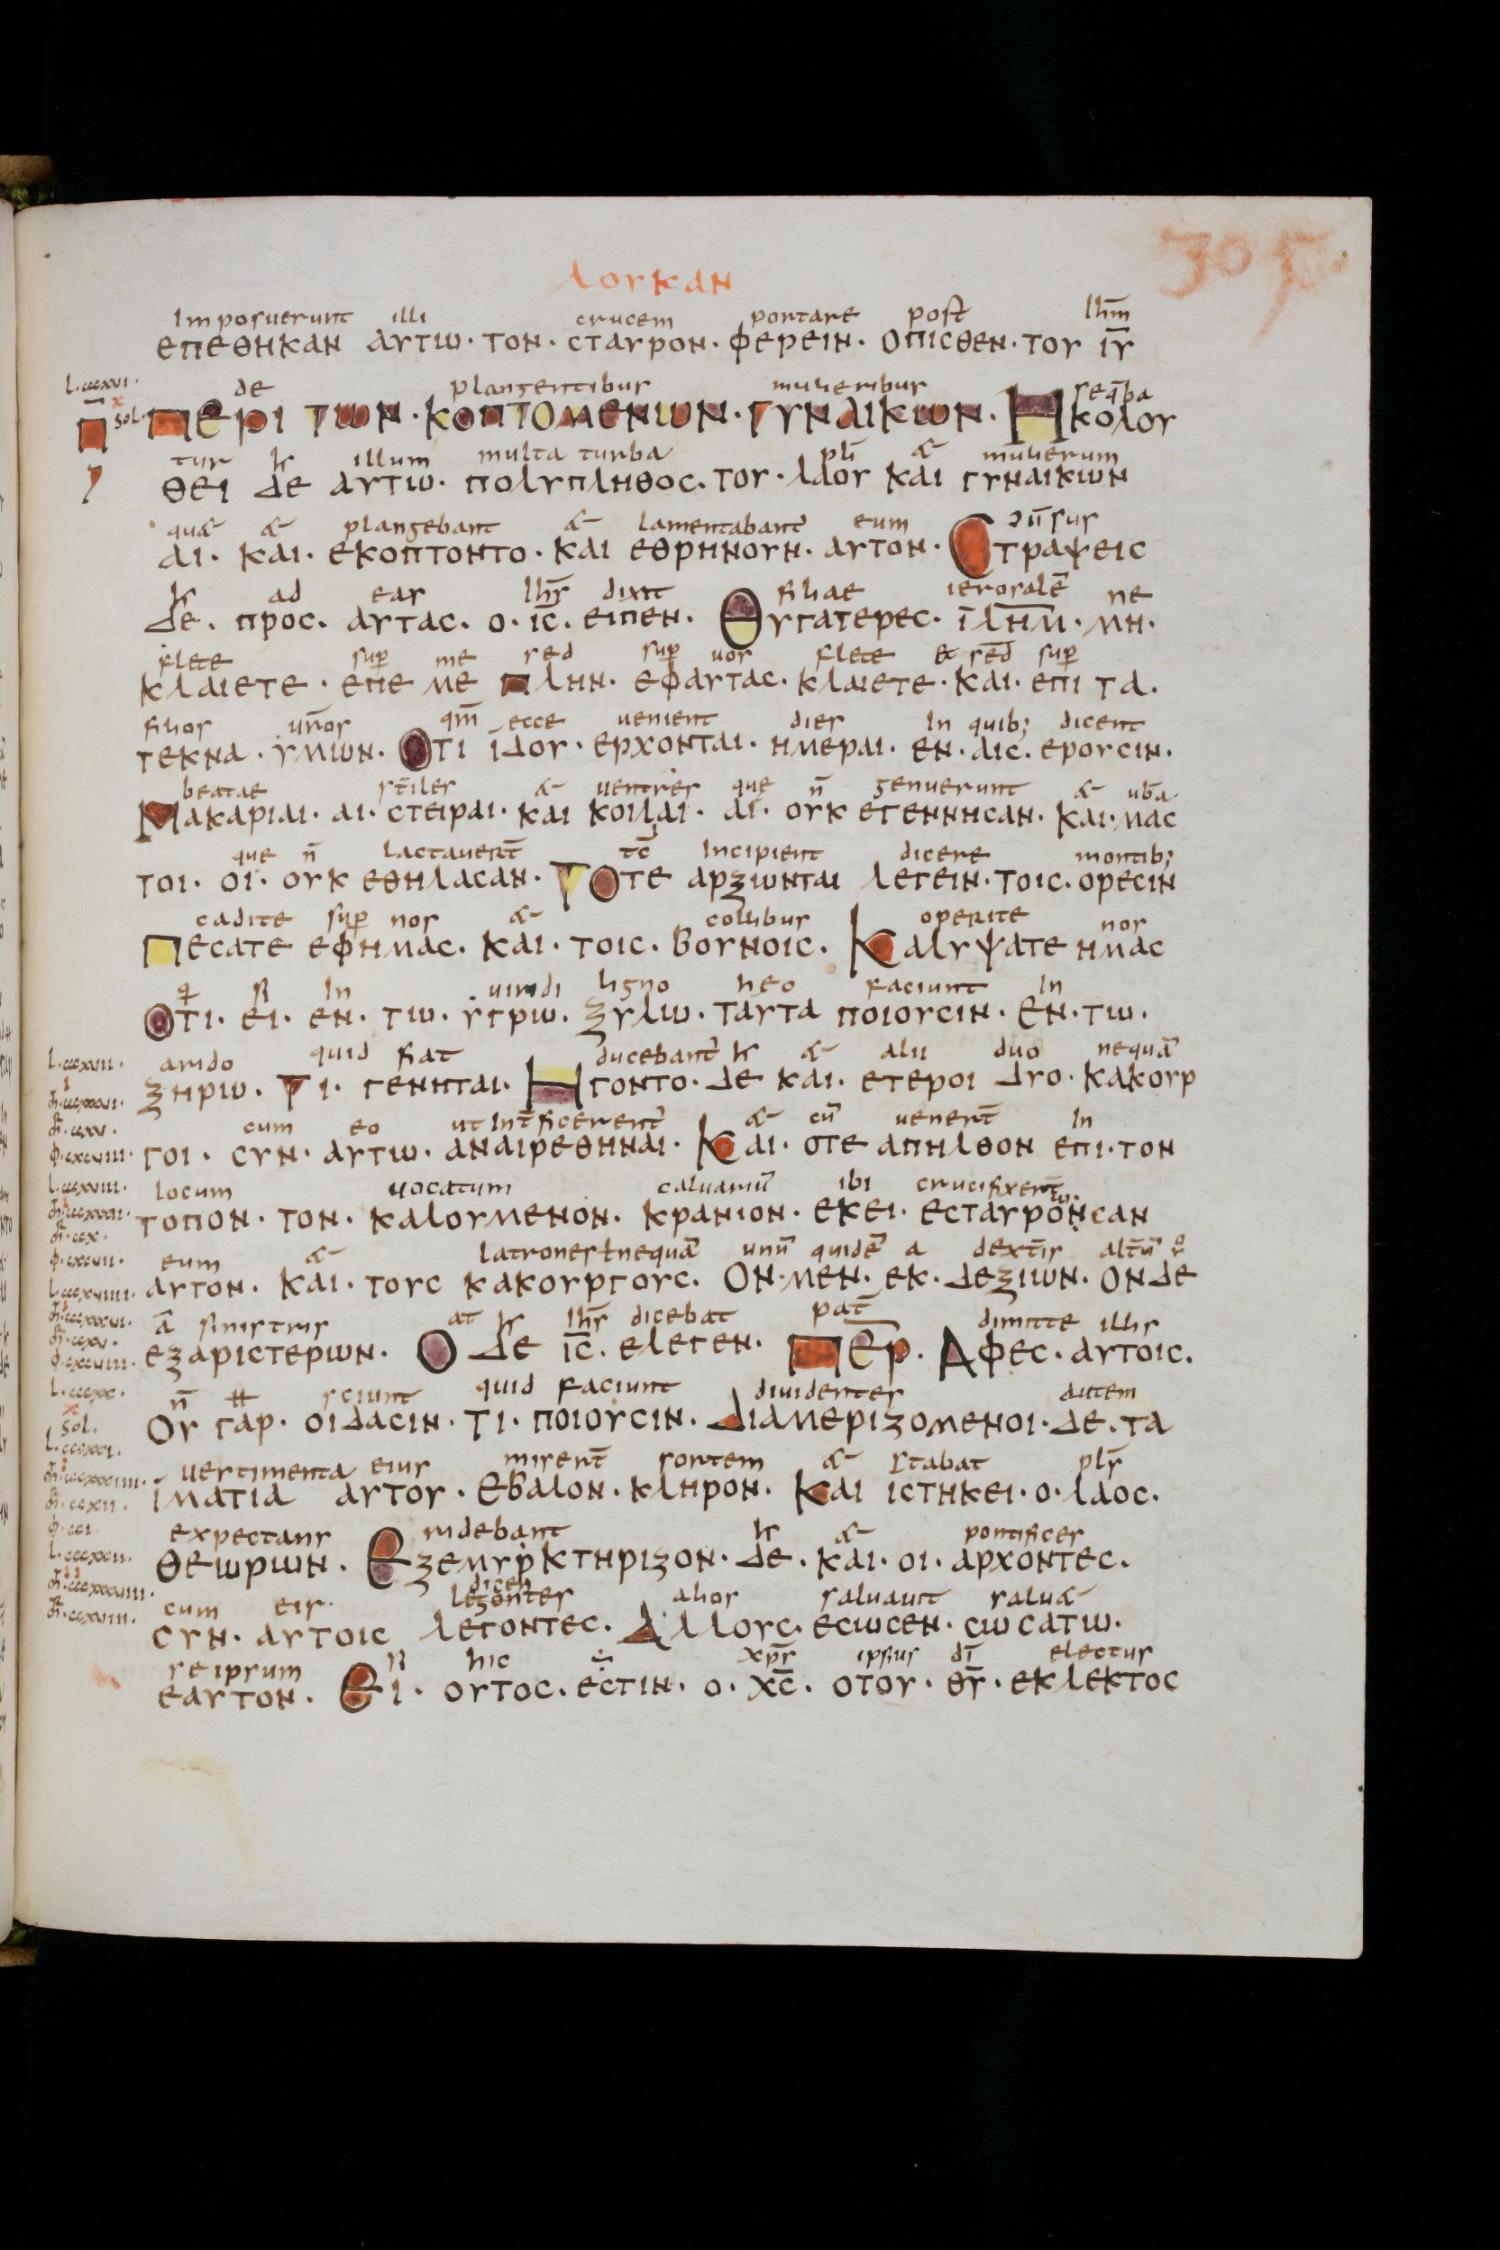 λουκαν
305
Imposuerunt illi crucem portare post Ihm̄
επεθηκαν αυτω· τον· σταυρον· φερειν· οπισθεν· του ιυ̅
L·cccxvi· de plangentibus mulieribus seq̄ba
π̅ sol· περι των· κοπτομενων· γυναικων· Ηκολου
tur h illum multa turba pli̅ & mulierum
θει δε αυτω· πολυπληθος· του· λαου και γυναικων
quae & plangebant & lamentabant̄ eum ɔu̅sus
αι· και· εκοπτοντο· και εθρηνουν· αυτον· Cτραψεις
h ad eas Ihs̄ dixit filiae ierosalē ne
δε· προς· αυτας· ο· ις̅· ειπεν· Θυγατερες· ιλημ̅· μη·
flete sup̱ me sed sup̱ uos flete & sed̄ sup̱
κλαιετε· επε με πλην· εφαυτας· κλαιετε· και· επι τα·
filios ur̄os qm̄ ecce uenient dies In quib; dicent
τεκνα· υμων· Οτι ιδου· ερχονται· ημεραι· εν· αις· ερουσιν·
beatae st̄iles & uentres que n̄ genuerunt & ub̄a
Μακαριαι· αι· στειραι· και κοιλαι· αι· ουκ εγεννησαν· και· μας
que n̄ lactauer̄t tc̄ Incipient dicere montib;
τοι· οι· ουκ εθηλασαν· Τοτε αρξωνται λεγειν· τοις· ορεσιν
cadite sup̱ nos & collibus operite nos
Πεσατε εφημας· και· τοις· βουνοις· Καλυψατε ημας
q̄ si In uiridi ligno heo faciunt In
Οτι· ει· εν· τω· υγρω· ξυλω· ταυτα ποιουσιν· εν· τω·
L·cccxvii· arido quid fiat ducebant̄ h & alii duo nequā
ξηρω· Τι· γενηται· Ηγοντο· δε και· ετεροι δυο· κακουρ
cum eo ut Int̄ficerent̄ & cū uener̄t In
γοι· συν· αυτω· αναιρεθηναι· Και· οτε απηλθον επι· τον
L·cccxviii· locum uocatum caluariū ibi crucifixer̄t
τοπον· τον· καλουμενον· κρανιον· εκει· εσταυρονσαν
eum & latronesƚnequā unū quidē a dext̄is alt̄ū
αυτον· και· τους κακουργους· Ον· μεν· εκ· δεξιων· ονδε
ā sinistris at h Ihs̄ dicebat pat̄ dimitte illis
εξαριστερων· Ο δε ις̅· ελεγεν· Πε̅ρ· Αφες· αυτοις·
n̄ sciunt quid faciunt diuidentes autem
Ου γαρ· οιδασιν· τι· ποιουσιν· Διαμεριζομενοι· δε· τα
uestimenta eius miser̄t sortem & stabat pls̄
ιματια αυτου· εβαλον· κληρον· Και ιστηκει· ο· λαος·
expectans ridebant h & pontifices
θεωρων· Εξεμυρκτηριζον· δε· και· οι· αρχοντες·
cum eis dicen legontes alios saluauit saluā
συν· αυτοις λεγοντες· Αλλους· εσωσεν· σωσατω·
seipsum si hic xps̄ ipsius dī electus
εαυτον· Ει· ουτος· εστιν· ο· χς̅· οτου· θυ̅· εκλεκτος